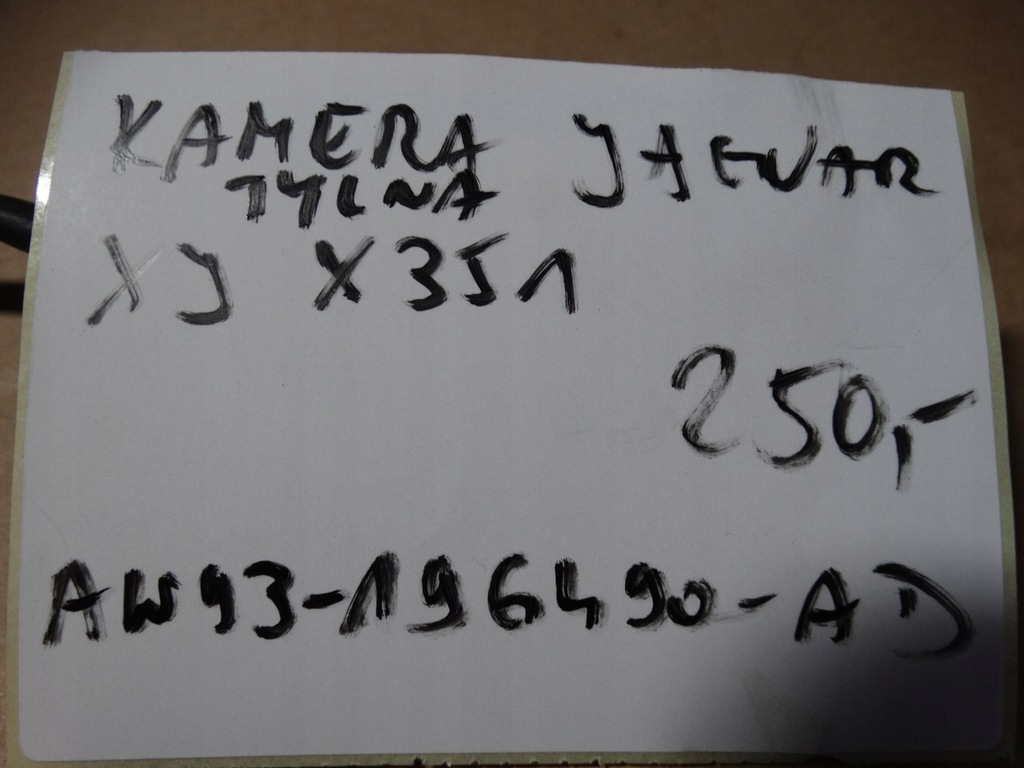 KAMERA JAGUAR
TYLNA
XJ X351
250,-
AW93-196490-AD